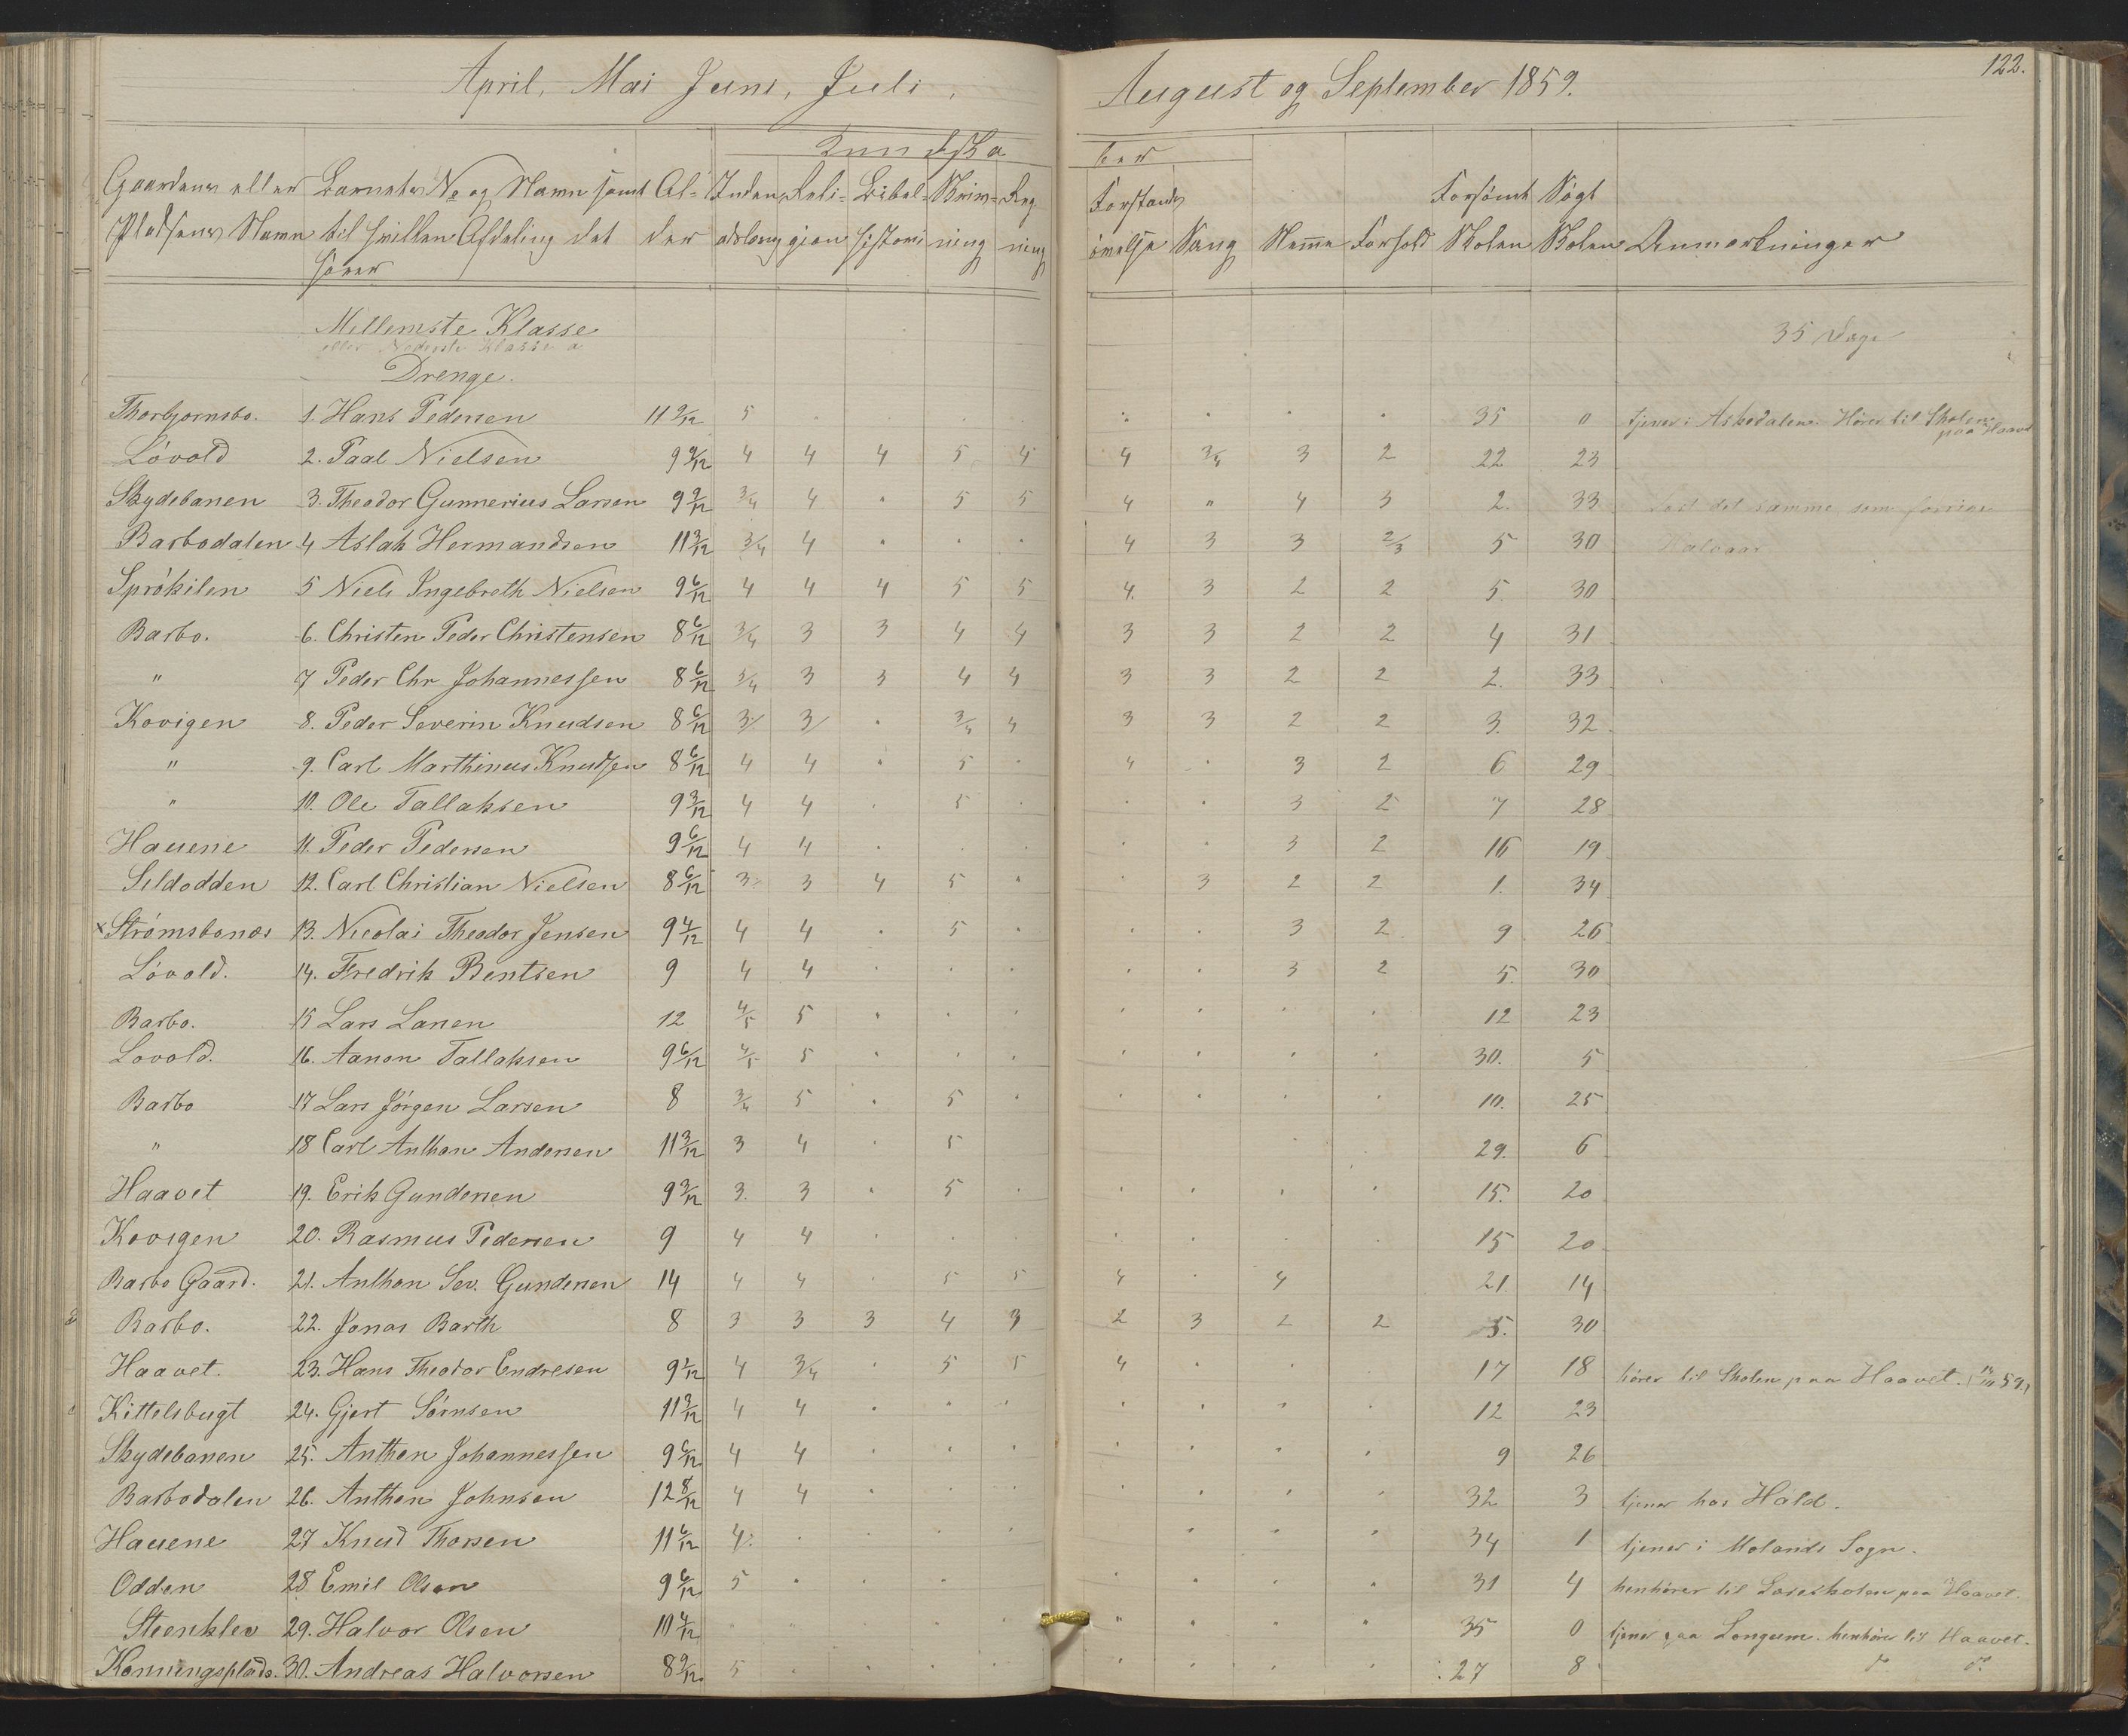 122.
April, Mai Juni, Juli, August og September 1859.
Kundska ber
Gaardens eller Barnets No og Navn samt Al- Inden- Reli- Bibel- Skriv- Reg- Forstands Forsømt Søgt
Pladsens Navn til hvilken Afdeling det der adslæsn gion historie ning ning øvelse Sang Nemme Forhold Skolen Skolen Anmærkninger
hører
Mellemste Klasse 35 Dage
eller Nederste Klasse a
Drenge.
Thorbjørnsbo. 1. Hans Pedersen 11 9/12 5 . . . . . . . 35 0 tjener i Askedalen. Hører til Skolen
paa Haavet
Lövold 2. Paal Nielsen 9 9/12 4 4 4 5 5 4 3/4 3 2 22 23
Skydebanen 3. Theodor Gunnerius Larsen 9 9/12 3/4 4 " 5 5 4 " 4 3 2. 33 Læst det samme som forrige
Barbodalen 4 Aslak Hermandsen 11 3/12 3/4 4 . . . 4 3 3 2/3 5 30 Halvaar
Sprökilen 5 Niels Ingebreth Nielsen 9 6/12 4 4 4 5 5 4. 3 2 2 5. 30
Barbo. 6. Christen Peder Christensen 8 6/12 3/4 3 3 4 4 3 3 2 2 4 31
" 7 Peder Chr Johannessen 8 6/12 3/4 3 3 4 4 3 3 2 2 2. 33
Kovigen 8. Peder Severin Knudsen 8 6/12 3/ 3/ . 3/4 4 3 3 2 2 3. 32
" 9. Carl Marthinus Knudsen 8 6/12 4 4 . 5 . 4 . 3 2 6 29
" 10. Ole Tallaksen 9 3/12 4 4 . 5 . . . 3 2 7 28
Hauene 11. Peder Pedersen 9 6/12 4 4 . . . . . 3 2 16 19
Sildodden 12. Carl Christian Nielsen 8 6/12 3 3 4 5 . . 3 2 2 1. 34
x Strömsbonæs 13. Nicolai Theodor Jensen 9 4/12 4 4 . 5 . . . 3 2. 9 26
Lövold. 14. Fredrik Bentsen 9 4 4 . . . . . 3 2 5. 30
Barbo. 15 Lars Larsen 12 4/5 5 . . . . . . . 12 23
Lovold. 16. Aanon Tallaksen 9 6/12 4/5 5 . . . . . . . 30. 5
Barbo 17 Lars Jörgen Larsen 8 3/4 5 . 5 . . . . . 10. 25
" 18 Carl Anthon Andersen 11 3/12 3 4 . 5 29. 6
Haavet 19. Erik Gundersen 9 3/12 3. 3 . 5 . . . . . 15. 20
Kovigen 20. Rasmus Pedersen 9 4 4 . . . . . . . 15 20
Barbo Gaard. 21. Anthon Sev. Gundersen 14 4 4 . 5 5 4 . 4 21. 14
Barbo. 22. Jonas Barth 8 3 3 3 4 3 2 3 2 2 5. 30
Haavet. 23. Hans Theodor Endresen 9 1/12 4 3/4 . 5 5 4 . . 17 18 hører til Skolen paa Haavet.
Kittelsbugt 24. Gjert Sörnsen 11 3/12 4 4 . . . . . . . 12 23
Skydebanen 25. Anthon Johannessen 9 6/12 4 4 . . . . . . . 9 26
Barbodalen 26. Anthon Johnsen 12 8/12 4 4 . . . . . . . 32 3 tjener hos Hald.
Hauene 27 Knud Thorsen 11 6/12 4. . . . . . . . 34 1 tjener i Molands Sogn.
Odden 28 Emil Olsen 9 6/12 5 . . . . . . . 31 4 henhører til Læseskolen paa Haavet.
Steenklev 29. Halvor Olsen 10 4/12 . . . . . " . . . 35 0 tjener paa Longum. henhörer til Haavet.
Konningsplads. 30. Andreas Halvorsen 8 9/12 5 . . . . . . . . 27 8 do do